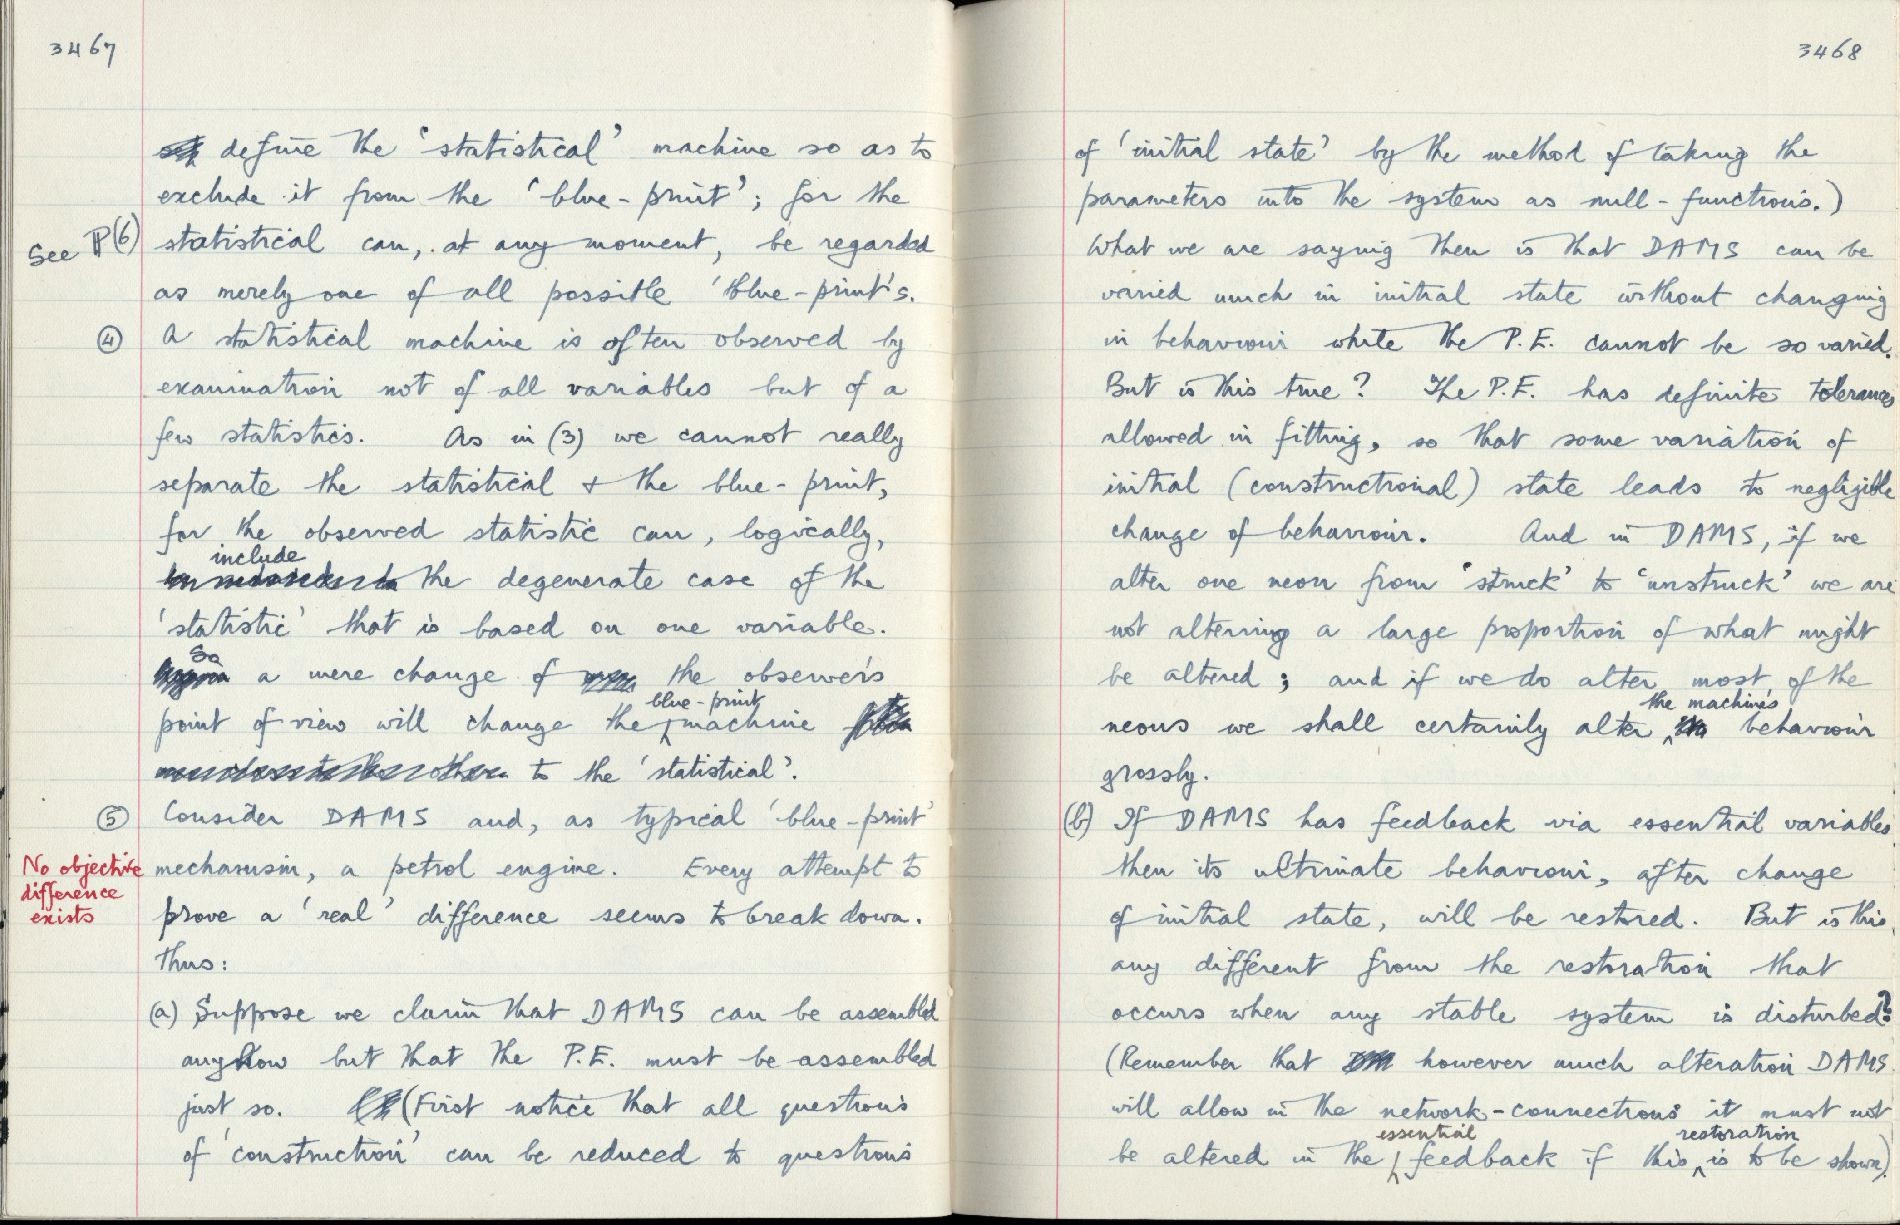 3467
define the 'statistical' machine so as to
exclude it from the 'blue-print'; for the
See ¶(6) statistical can, at any moment, be regarded
as merely one of all possible 'blue-print's.
④ A statistical machine is often observed by
examination not of all variables but of a
few statistics. As in (3) we cannot really
separate the statistical & the blue-print,
for the observed statistic can, logically,
include the degenerate case of the
'statistic' that is based on one variable.
So a mere change of the observer's
point of view will change the blue-print machine
to the 'statistical'.
⑤ Consider DAMS and, as typical 'blue-print'
No objective difference exists
mechanism, a petrol engine. Every attempt to
prove a 'real' difference seems to break down.
Thus:
(a) Suppose we claim that DAMS can be assembled
anyhow but that the P.E. must be assembled
just so. (First notice that all questions
of 'construction' can be reduced to questions
3468
of 'initial state' by the method of taking the
parameters into the system as null-functions.)
What we are saying then is that DAMS can be
varied much in initial state without changing
in behaviour while the P.E. cannot be so varied.
But is this true? The P.E. has definite tolerances
allowed in fitting, so that some variation of
initial (constructional) state leads to negligible
change of behaviour. And in DAMS, if we
alter one neon from 'struck' to 'unstruck' we are
not altering a large proportion of what might
be altered; and if we do alter most of the
neons we shall certainly alter the machine's behaviour
grossly.
(b) If DAMS has feedback via essential variables
then its ultimate behaviour, after change
of initial state, will be restored. But is this
any different from the restoration that
occurs when any stable system is disturbed?
(Remember that however much alteration DAMS
will allow in the network-connections it must not
be altered in the essential feedback if this restoration is to be shown).